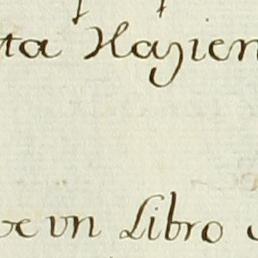 ta Hazien
un Libro